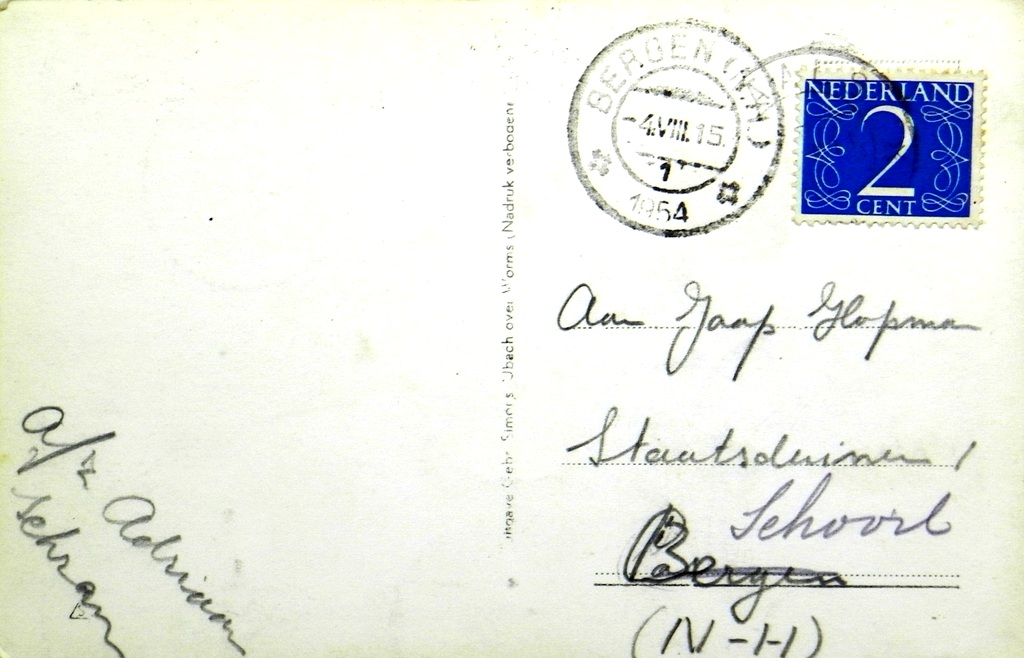 BERGEN (N.H.)
-4.VIII.15.
1
1954
NEDERLAND
2
CENT
Uitgave Gebr. Simons Ubach over Worms (Nadruk verboden)
Aan Jaap Hopman
Staatsduinen 1
Schoorl
Bergen
(N-H)
a/z Adriaan
Schram